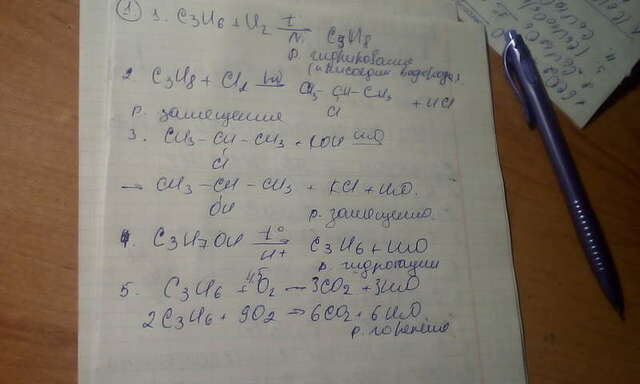 ① 1. C3H6 + H2 t Ni C3H8
р. гидрирование
(присоедин водорода)
2. C3H8 + Cl2 hν CH3-CH-CH3 + HCl
Cl
р. замещения
3. CH3-CH-CH3 + KOH H2O
Cl
→ CH3-CH-CH3 + KCl + H2O.
OH
р. замещение.
4. C3H7OH t° H+ → C3H6 + H2O
р. гидротации
5. C3H6 + 4,5 O2 — 3CO2 + 3H2O
2C3H6 + 9O2 → 6CO2 + 6H2O
р. горение